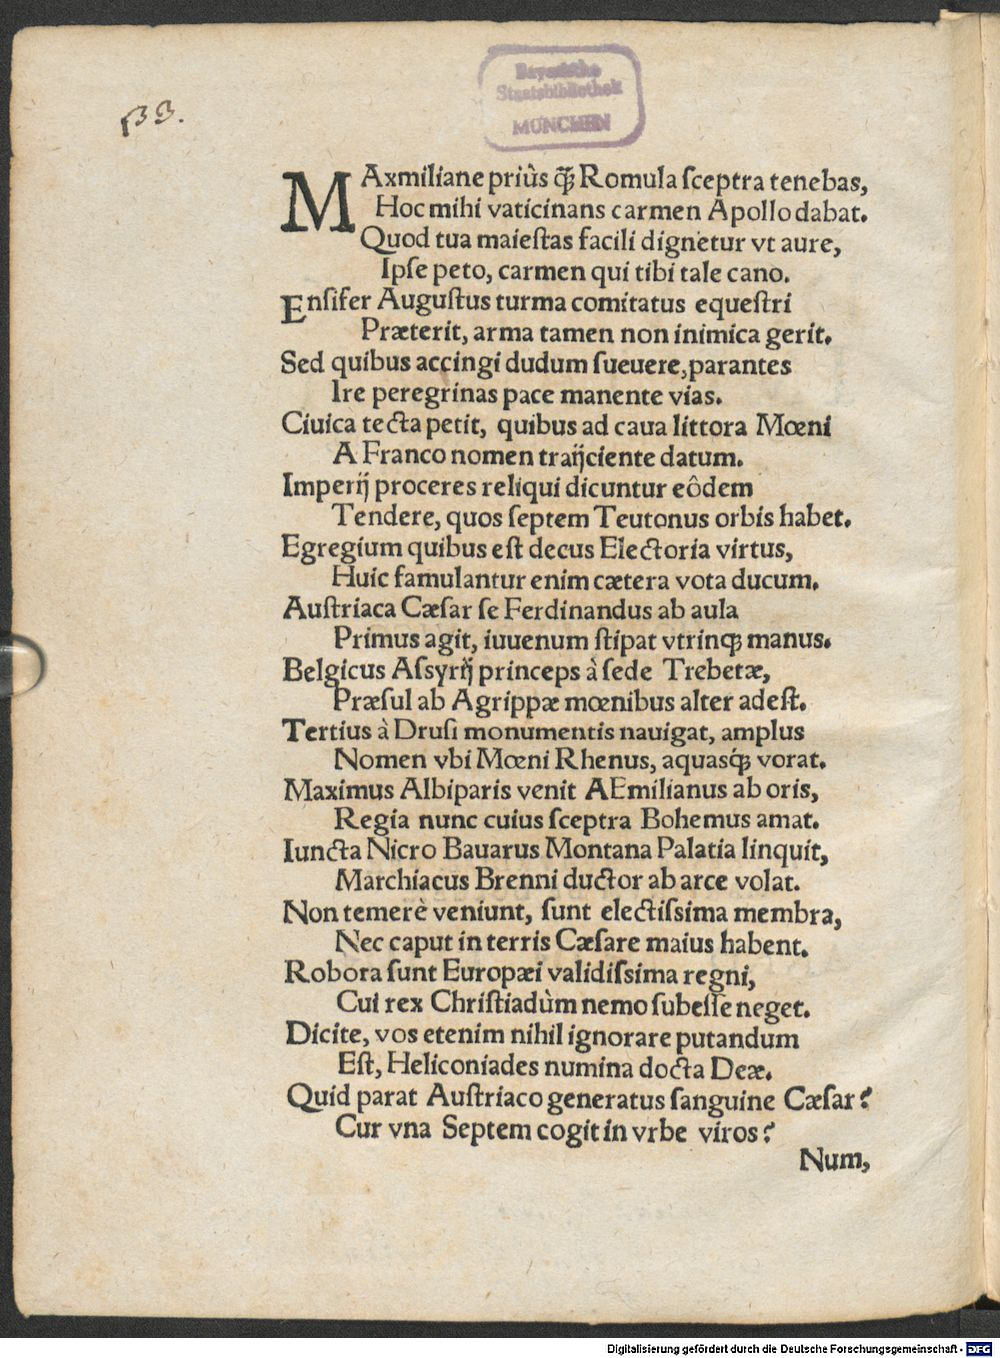 33.
Bayerische
Staatsbibliothek
MÜNCHEN
MAxmiliane priùs q̃ꝫ Romula ſceptra tenebas,
Hoc mihi vaticinans carmen Apollo dabat.
Quod tua maieſtas facili dignetur vt aure,
Ipſe peto, carmen qui tibi tale cano.
Enſifer Auguſtus turma comitatus equeſtri
Præterit, arma tamen non inimica gerit.
Sed quibus accingi dudum ſueuere, parantes
Ire peregrinas pace manente vias.
Ciuica tecta petit, quibus ad caua littora Mœni
A Franco nomen traijciente datum.
Imperij proceres reliqui dicuntur eôdem
Tendere, quos ſeptem Teutonus orbis habet.
Egregium quibus eſt decus Electoria virtus,
Huic famulantur enim cætera vota ducum.
Auſtriaca Cæſar ſe Ferdinandus ab aula
Primus agit, iuuenum ſtipat vtrinqꝫ manus.
Belgicus Aſsyrij princeps à ſede Trebetæ,
Præſul ab Agrippæ mœnibus alter adeſt.
Tertius à Druſi monumentis nauigat, amplus
Nomen vbi Mœni Rhenus, aquasq́ꝫ vorat.
Maximus Albiparis venit AEmilianus ab oris,
Regia nunc cuius ſceptra Bohemus amat.
Iuncta Nicro Bauarus Montana Palatia linquit,
Marchiacus Brenni ductor ab arce volat.
Non temerè veniunt, ſunt electiſsima membra,
Nec caput in terris Cæſare maius habent.
Robora ſunt Europæi validiſsima regni,
Cui rex Chriſtiadùm nemo ſubeſſe neget.
Dicite, vos etenim nihil ignorare putandum
Eſt, Heliconiades numina docta Deæ.
Quid parat Auſtriaco generatus ſanguine Cæſar?
Cur vna Septem cogit in vrbe viros?
Num,
Digitalisierung gefördert durch die Deutsche Forschungsgemeinschaft - DFG